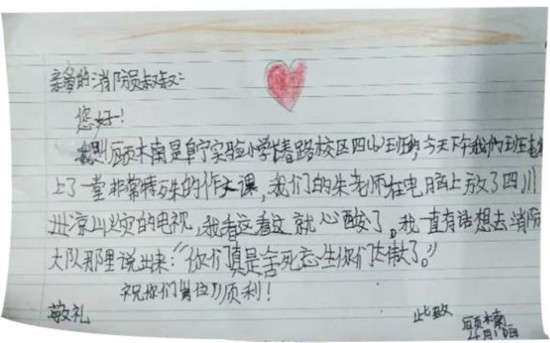 亲爱的消防员叔叔:
您好!
我是顾木南是阜宁实验小学长春路校区四(2)班的,今天下午我们班
上了一堂非常特殊的作文课,我们的朱老师在电脑上放了四川
凉山火灾的电视,我看这看这就心酸了。我一直有话想去消防
大队那里说出来:“你们真是舍死忘生你们太伟大了。”
祝你们 顺利!
敬礼 此致
顾木南
4月10日